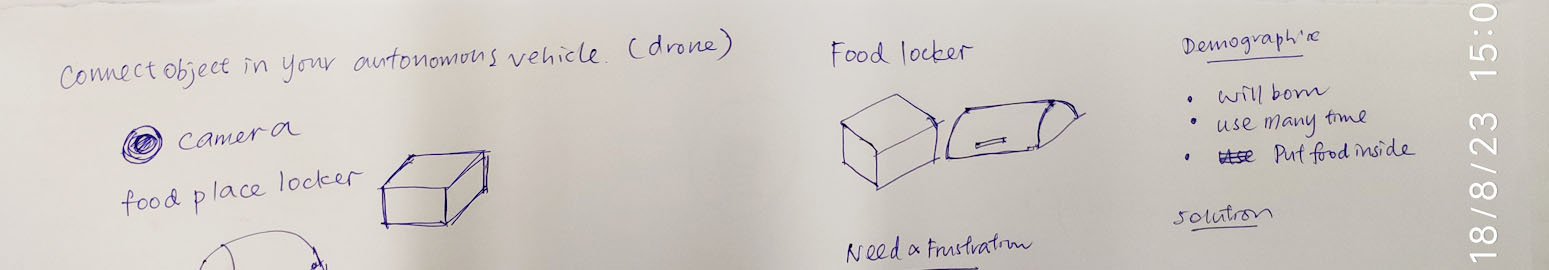 Connect object in your autonomous vehicle. (drone)
camera
food place locker
Food locker
Need & Frustration
Demographic
• will born
• use many time
• Use Put food inside
solution
18/8/23 15:0